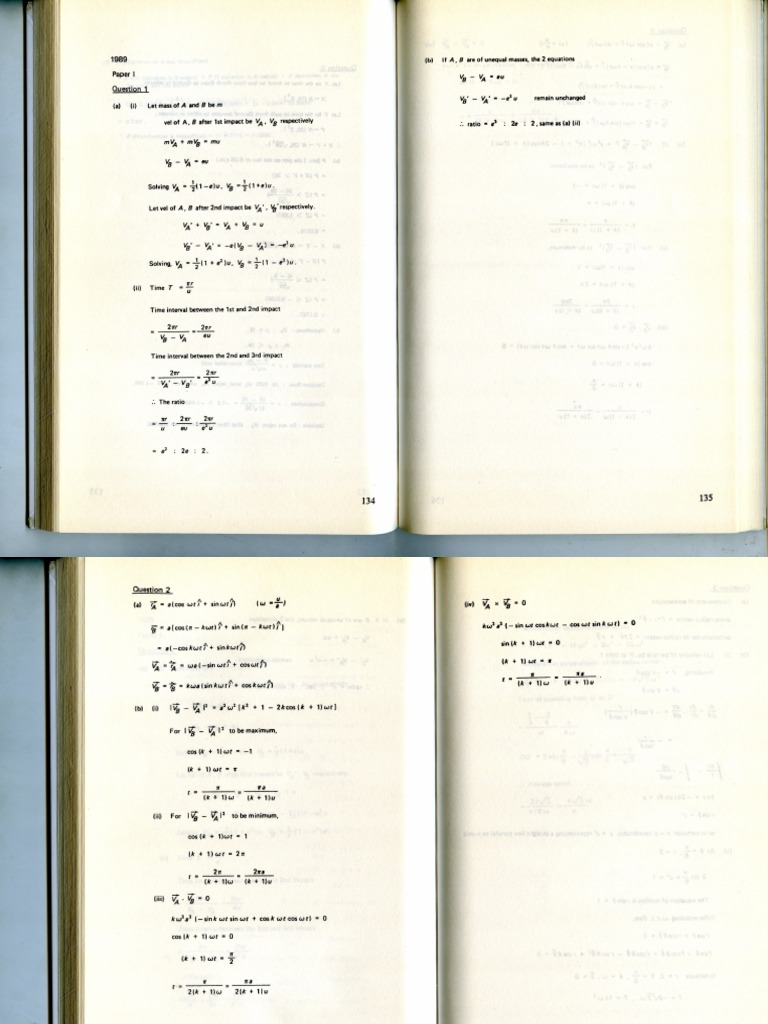 1989
Paper I
Question 1
(a) (i) Let mass of A and B be m
vel of A, B after 1st impact be V_A, V_B respectively
mV_A + mV_B = mu
V_B − V_A = eu
Solving V_A = 1/2(1−e)u, V_B = 1/2(1+e)u.
Let vel of A, B after 2nd impact be V_A', V_B' respectively.
V_A' + V_B' = V_A + V_B = u
V_B' − V_A' = −e(V_B − V_A) = −e²u
Solving, V_A' = 1/2(1 + e²)u, V_B' = 1/2(1 − e²)u.
(ii) Time T = πr/u
Time interval between the 1st and 2nd impact
= 2πr/(V_B − V_A) = 2πr/eu
Time interval between the 2nd and 3rd impact
= 2πr/(V_A' − V_B') = 2πr/e²u
∴ The ratio
= πr/u : 2πr/eu : 2πr/e²u
= e² : 2e : 2.
134
(b) If A, B are of unequal masses, the 2 equations
V_B − V_A = eu
V_B' − V_A' = −e²u remain unchanged
∴ ratio = e² : 2e : 2, same as (a) (ii)
135
Question 2
(a) r_A = a(cos ωt î + sin ωt ĵ) (ω = u/a)
r_B = a[cos(π − kωt) î + sin(π − kωt) ĵ]
= a(−cos kωt î + sin kωt ĵ)
V_A = ṙ_A = ωa(−sin ωt î + cos ωt ĵ)
V_B = ṙ_B = kωa(sin kωt î + cos kωt ĵ)
(b) (i) |V_B − V_A|² = a²ω²[k² + 1 − 2k cos(k + 1)ωt]
For |V_B − V_A|² to be maximum,
cos(k + 1)ωt = −1
(k + 1)ωt = π
t = π/(k + 1)ω = πa/(k + 1)u
(ii) For |V_B − V_A|² to be minimum,
cos(k + 1)ωt = 1
(k + 1)ωt = 2π
t = 2π/(k + 1)ω = 2πa/(k + 1)u
(iii) V_A · V_B = 0
kω²a²(−sin kωt sin ωt + cos kωt cos ωt) = 0
cos(k + 1)ωt = 0
(k + 1)ωt = π/2
t = π/2(k + 1)ω = πa/2(k + 1)u
(iv) V_A × V_B = 0
kω²a²(−sin ωt cos kωt − cos ωt sin kωt) = 0
sin(k + 1)ωt = 0
(k + 1)ωt = π
t = π/(k + 1)ω = πa/(k + 1)u.